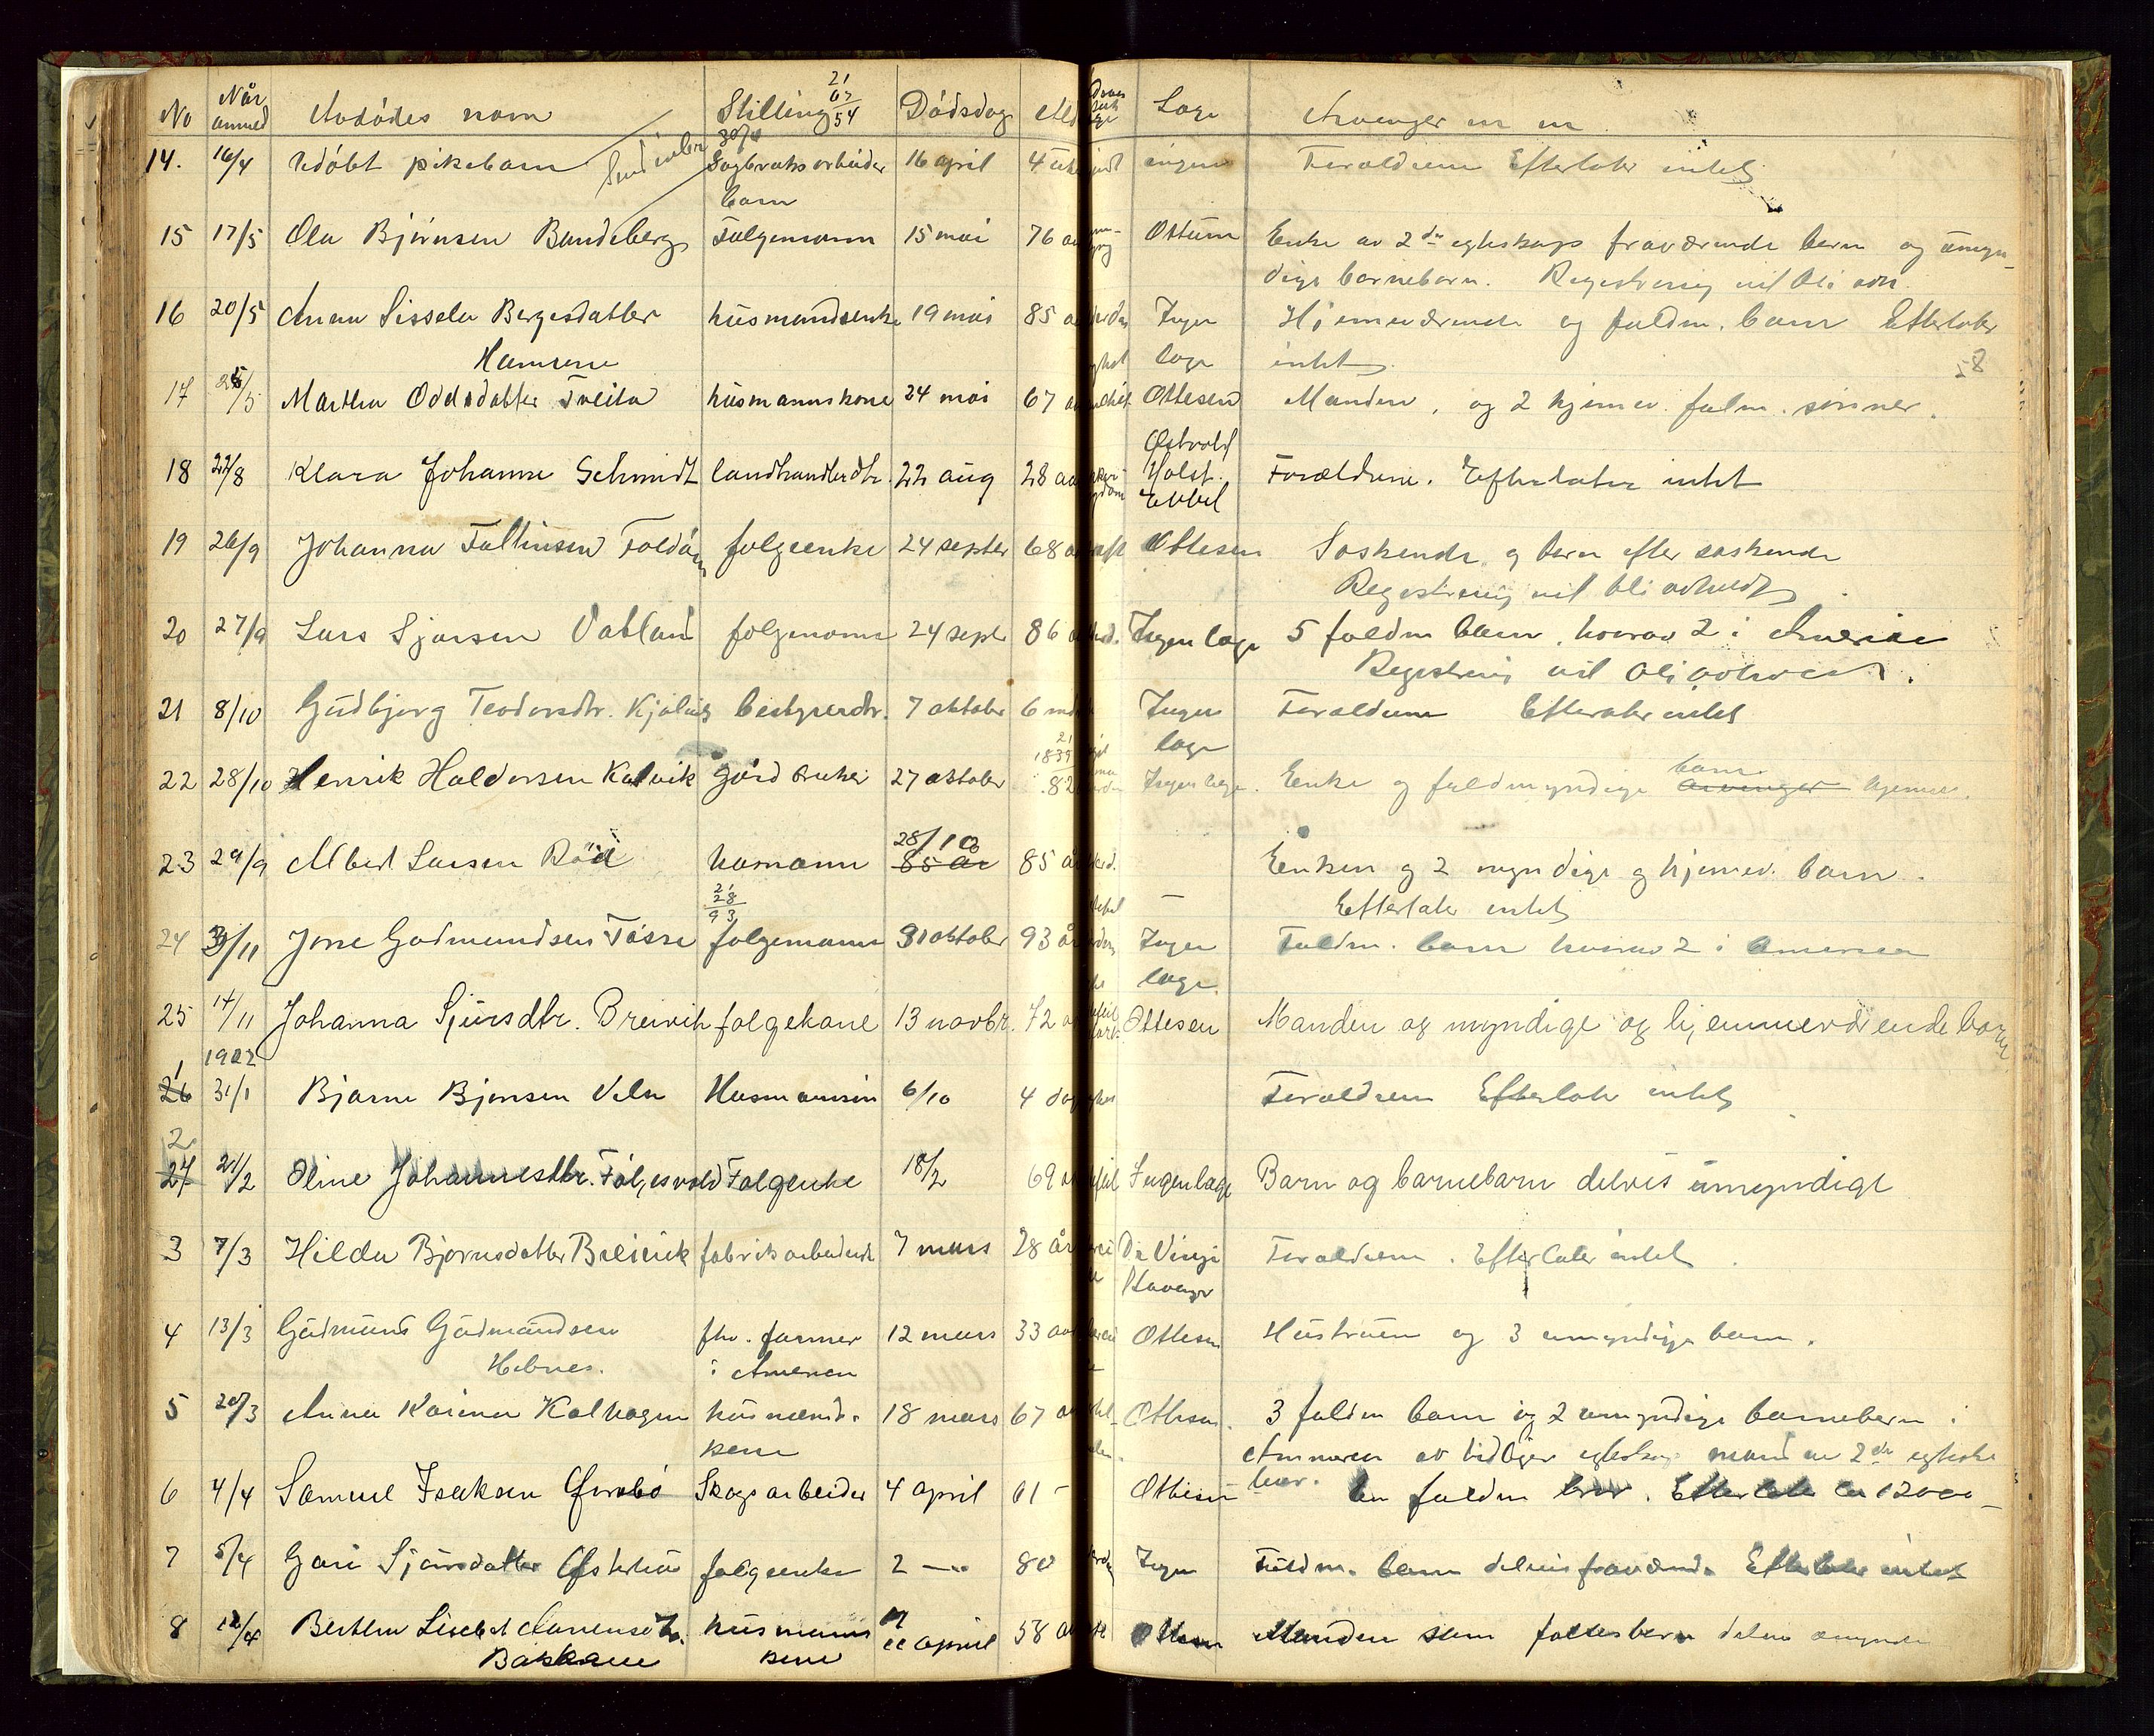 No Når anmed Avdødes navn Stilling 21/67/54 Dødsdag Ald Læge Arvinger m m
14. 16/4 Udøbt pikebarn Sagbruksarbeider 16 april 4 uke ingen Forældrene Efterlater intet
barn
15 17/5 Ola Bjørnsen Bandeberg Folgemann 15 mai 76 Ottesen Enke av 2det egteskap fraværende barn og umyn-
dige barnebarn. Registrering vil bli
16 20/5 Anna Sissela Bergesdatter husmandsenke 19 mai 85 Ingen Hjemværende og fuldm. barn Efterlater
Hamrene læge intet
58
17 25/5 Martha Oddsdatter Tveita husmannskone 24 mai 67 Ottesen Manden, og 2 hjemv. fulm. sønner.
Østvold
18 22/8 Klara Johanne Schmidt landhandlerdtr. 22 aug 28 Holst. Forældrene. Efterlater intet
Ebbel
19 26/9 Johanna Faltinsen Foldøy folgeenke 24 septer 68 Ottesen Søskende og barn efter søskende
Registrering vil bli avholdt
20 27/9 Lars Sjursen Vatland folgemann 24 septr 86 Ingen læge 5 fuldm barn, hvorav 2 i Amerika
Registrering vil bli avholdt.
21 8/10 Gudbjørg Teodorsdtr. Kjølvig bestyrerdtr. 7 oktober 6 Ingen Forældrene Efterlater intet
læge
1839
22 28/10 Henrik Haldorsen Kalvik Gårdbruker 27 oktober 82 Ingen læge. Enke og fuldmyndige arvinger barn hjemv.
28/10
23 29/9 Albert Larsen Rød husmann 85 år 85 år Enken og 2 myndige og hjemv. barn.
21/28/93 Efterlater intet
24 3/11 Jone Godmundsen Tøsse folgemann 31 oktober 93 år Ingen Fuldm. barn hvorav 2 i Amerika
læge.
25 14/11 Johanna Sjursdtr. Breivik folgekone 13 novbr. 72 Ottesen Manden og myndige og hjemmeværende barn
1922
1 26 31/1 Bjarne Bjørnsen Vela Husmannsøn 6/10 4 dag Forældrene Efterlater intet
2 27 21/2 Oline Johannesdtr. Følgesvold Folgenke 18/2 69 Ingen læge Barn og barnebarn delvis umyndige
3 7/3 Hilda Bjørnsdatter Breivik fabrikarbeiderske 7 mars 28 år Dr Vinje Forældrene. Efterlater intet
Stavanger
4 13/3 Gudmund Gudmundsen fhv. farmer 12 mars 33 Ottesen Hustruen og 3 umyndige barn.
Hebnes. i Amerika
5 20/3 Anna Karina Kalhagen husmands- 18 mars 67 Ottesen. 3 fuldm barn og 2 umyndige barnebarn i
kone Amerika av tidligere egteskap mand av 2det egteskap
6 4/4 Samuel Isaksen Skogsarbeider 4 april 61 - Ottesen lever. En fuldm bror. Efterlater ca 12000 -
7 5/4 Gari Sjursdatter Østerhus folgeenke 2 -"- 80 Ingen Fuldm. barn delvis fraværende. Efterlater intet
8 12/4 Bertha Lisebet husmanns 11 april 58 Ottesen Manden samt fællesbarn delvis umyndi
Bakkane kone